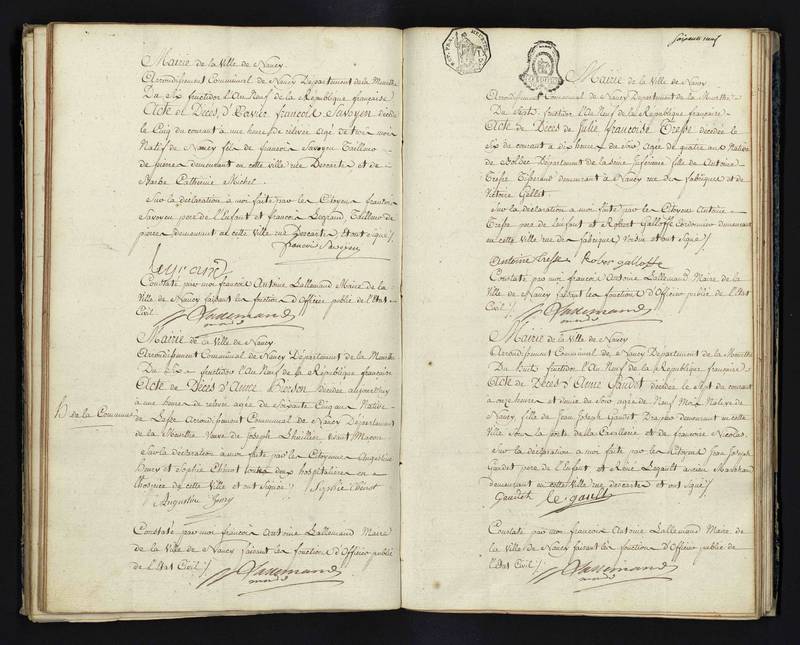 Mairie de la Ville de Nancy
Arrondissement Communal de Nancy Departement de la Meurthe
Du Six fructidor l'An Neuf de la République française
Acte de Décès, d'Xavier François Savoyen décédé
le Cinq du courant à une heure de relevée agé de trois mois
Natif de Nancy fils de françois Savoyen Tailleur
de pierre demeurant en cette ville rue Descartes et de
Barbe Catherine Michel.
Sur la déclaration à moi faite par les Citoyens françois
Savoyen pere de l'Enfant et françois Legrand, Tailleur de
pierres demeurant en cette Ville rue Descartes et ont signé /.
francois Savoyen
legrand
Constaté par moi françois Antoine Lallemand Maire de la
Ville de Nancy faisant les fonctions d'Officier public de l'Etat
Civil /.
Lallemand
Mairie de la Ville de Nancy
Arrondissement Communal de Nancy Département de la Meurthe
Du Six fructidor l'An Neuf de la République française
Acte de Décès d'Anne décédée aujourd'huy
à une heure de relevée agée de Soixante Cinq ans Native
h de la Commune de Arrondissement Communal de Nancy Département
de la Meurthe Veuve de Joseph Lhuillier vivant Maçon
Sur la déclaration à moi faite par les Citoyennes Augustine
Henry et Sophie Chinot toutes deux hospitalières en
l'hospice de cette Ville et ont signée / Sophie Chinot
Augustine
Constaté par moi françois Antoine Lallemand Maire
de la Ville de Nancy faisant les fonctions d'Officier public
de l'Etat Civil /.
Lallemand
soixante neuf
Mairie de la Ville de Nancy
Arrondissement Communal de Nancy Departement de la Meurthe
Du Sept fructidor l'An Neuf de la Republique française
Acte de Décès de Julie françoise Treffe décédée le
Six du courant à dix heures du soir, agée de quatre ans Native
de Bolbec Département de la Seine Inférieure fille de Antoine
Treffe Tisserand demeurant à Nancy rue des fabriques et de
Victoire Gellet.
Sur la déclaration à moi faite par les Citoyens Antoine
Treffe pere de l'enfant et Robert Galloffe Cordonnier demeurant
en cette Ville rue des fabriques Voisin et ont signé /.
Antoine treffe / Rober galloffe
Constaté par moi françois Antoine Lallemand Maire de la
Ville de Nancy faisant les fonctions d'Officier public de l'Etat
Civil /.
Lallemand
Mairie de la Ville de Nancy
Arrondissement Communal de Nancy Departement de la Meurthe
Du huit fructidor l'An Neuf de la Republique française
Acte de Décès d'Anne Gaudot décédée le Sept du courant
à onze heures et demie du soir agée de Neuf mois Native de
Nancy, fille de Jean Joseph Gaudot Drapier demeurant en cette
Ville sous la porte de la Cavallerie et de françoise Nicolas.
Sur la déclaration à moi faite par les Citoyens Jean Joseph
Gaudot pere de l'Enfant et René Legault ancien Marchand
demeurant en cette Ville rue descartes et ont signé /.
le gault
Constaté par moi françois Antoine Lallemand Maire de
la Ville de Nancy faisant les fonctions d'Officier public de
l'Etat Civil /.
Lallemand